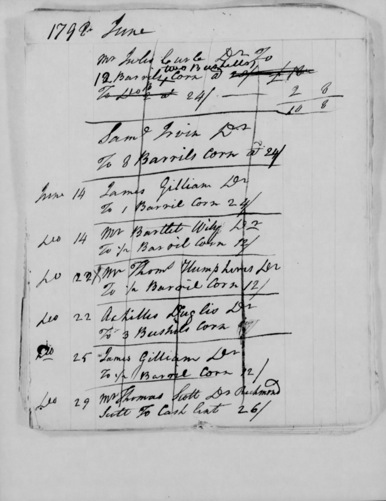 June
Mr Dr To
12 Barrils Corn @
To @ 24/ 2 8
10 8
Saml Irvin Dr
To 8 Barrils Corn @ 24/
June 14 James Gilliam Dr
To 1 Barril Corn 24/
Do 14 Mr Bartlet Dr
To 1/2 Barril Corn 12/
Do 22 Mr Thoms Humphries Dr
To 1/2 Barril Corn 12/
Do 22 Achilles Duglis Dr
To 3 Bushels Corn
Do 25 James Gilliam Dr
To 1/2 Barril Corn 12/
Do 29 Mr Thomas Scott Dr Richmond
Scott To Cash Lint 26/